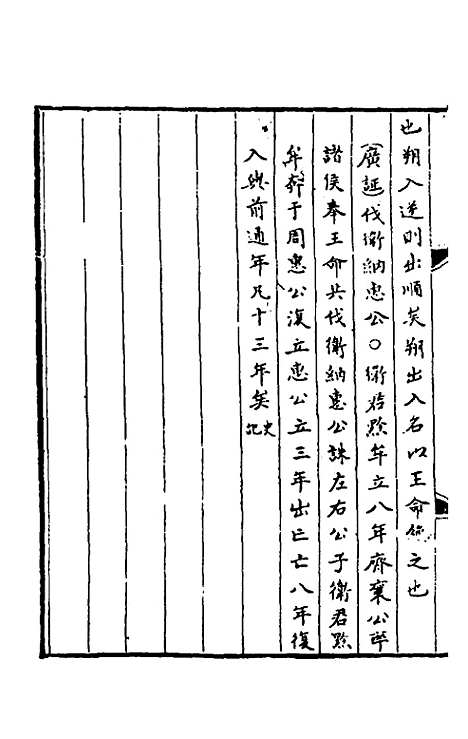 也朔入逆則出順矣朔出入名以王命絕之也
廣誕伐衛納惠公○衛君黔牟立八年齊襄公率
諸侯奉王命共伐衛納惠公誅左右公子衛君黔
牟奔于周惠公復立惠公立三年出亡亡八年復
入與前通年凡十三年矣史記